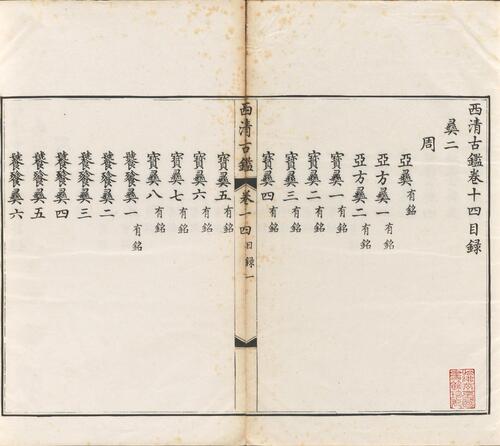 西清古鑑卷十四目録
彝二
周
亞彝有銘
亞方彝一有銘
亞方彝二有銘
寶彝一有銘
寶彝二有銘
寶彝三有銘
寶彝四有銘
西清古鑑 卷十四目録 一
寶彝五有銘
寶彝六有銘
寶彝七有銘
寶彝八有銘
饕餮彝一有銘
饕餮彝二
饕餮彝三
饕餮彝四
饕餮彝五
饕餮彝六